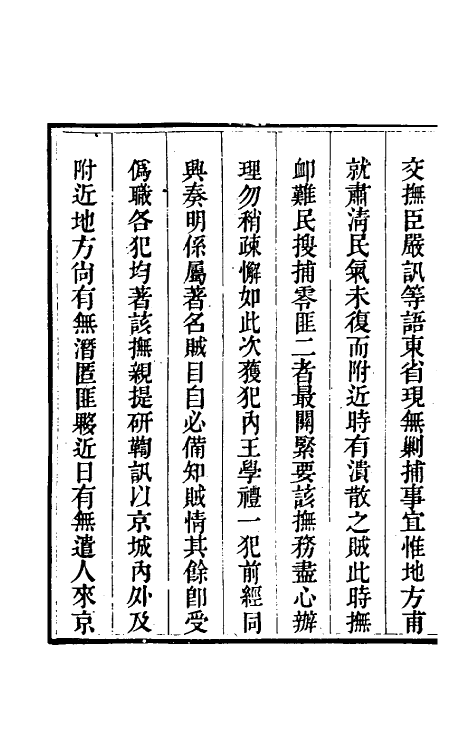 交撫臣嚴訊等語東省現無剿捕事宜惟地方甫
就肅淸民氣未復而附近時有潰散之賊此時撫
卹難民搜捕零匪二者最關緊要該撫務盡心辦
理勿稍疎懈如此次獲犯內王學禮一犯前經同
興奏明係屬著名賊目自必備知賊情其餘卽受
僞職各犯均著該撫親提研鞫訊以京城內外及
附近地方尙有無潛匿匪夥近日有無遣人來京